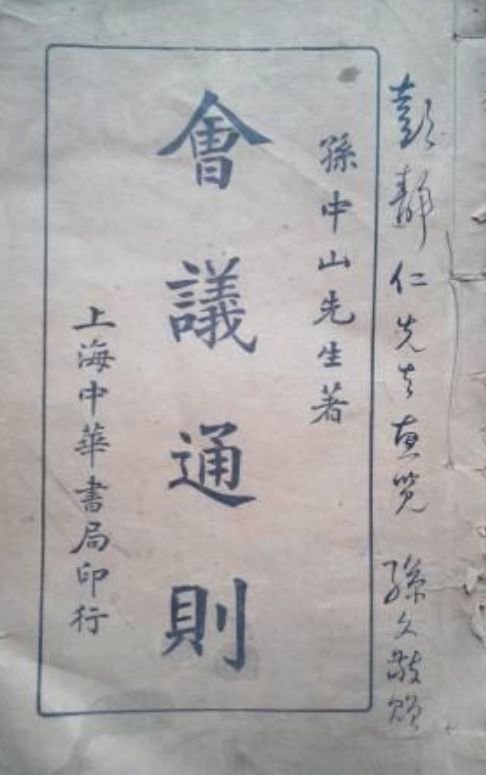 彭靜仁先生惠览 孫文敬贈
孫中山先生著
會議通則
上海中華書局印行